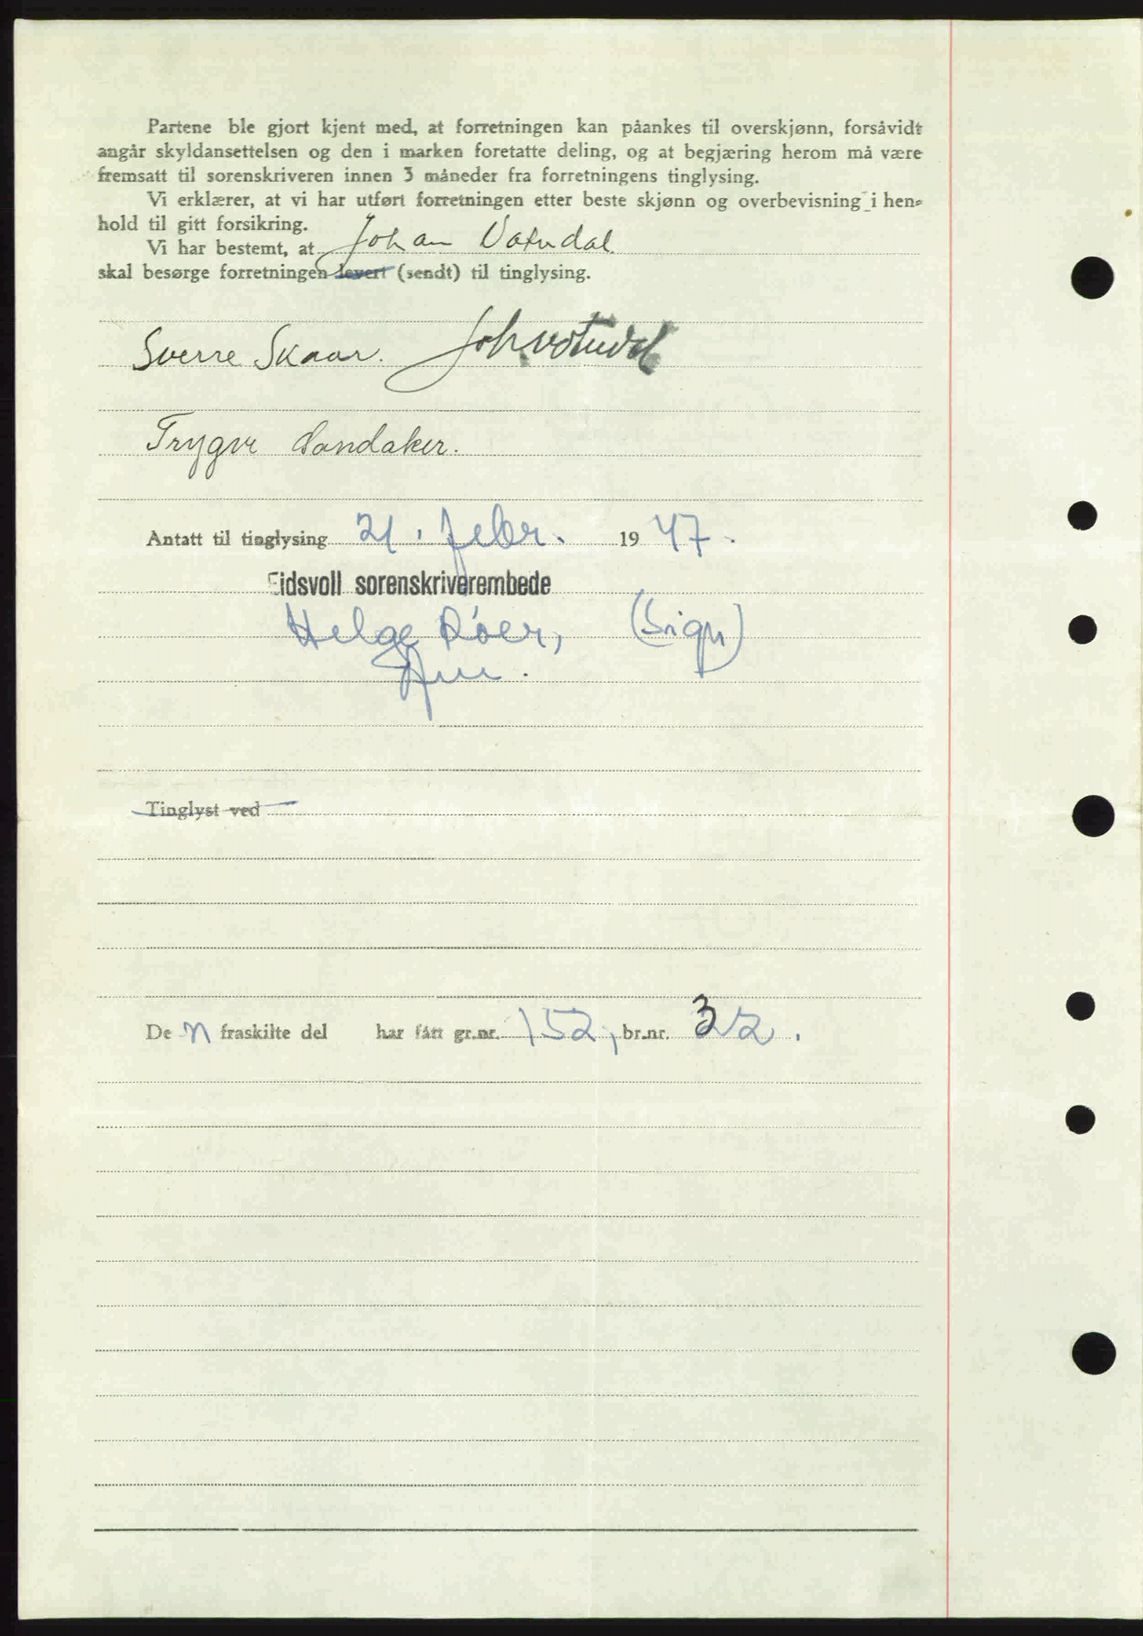 Partene ble gjort kjent med, at forretningen kan påankes til overskjønn, forsåvidt
angår skyldansettelsen og den i marken foretatte deling, og at begjæring herom må være
fremsatt til sorenskriveren innen 3 måneder fra forretningens tinglysing.
Vi erklærer, at vi har utført forretningen etter beste skjønn og overbevisning i hen-
hold til gitt forsikring.
Vi har bestemt, at Johan Vatndal
skal besørge forretningen levert (sendt) til tinglysing.
Sverre Skaar. Joh Vatndal
Trygve Sandaker.
Antatt til tinglysing 21. febr. 1947.
Eidsvoll sorenskriverembede
Helge Röer, (Sign)
Tinglyst ved
De n fraskilte del har fått gr.nr. 152, br.nr. 32.